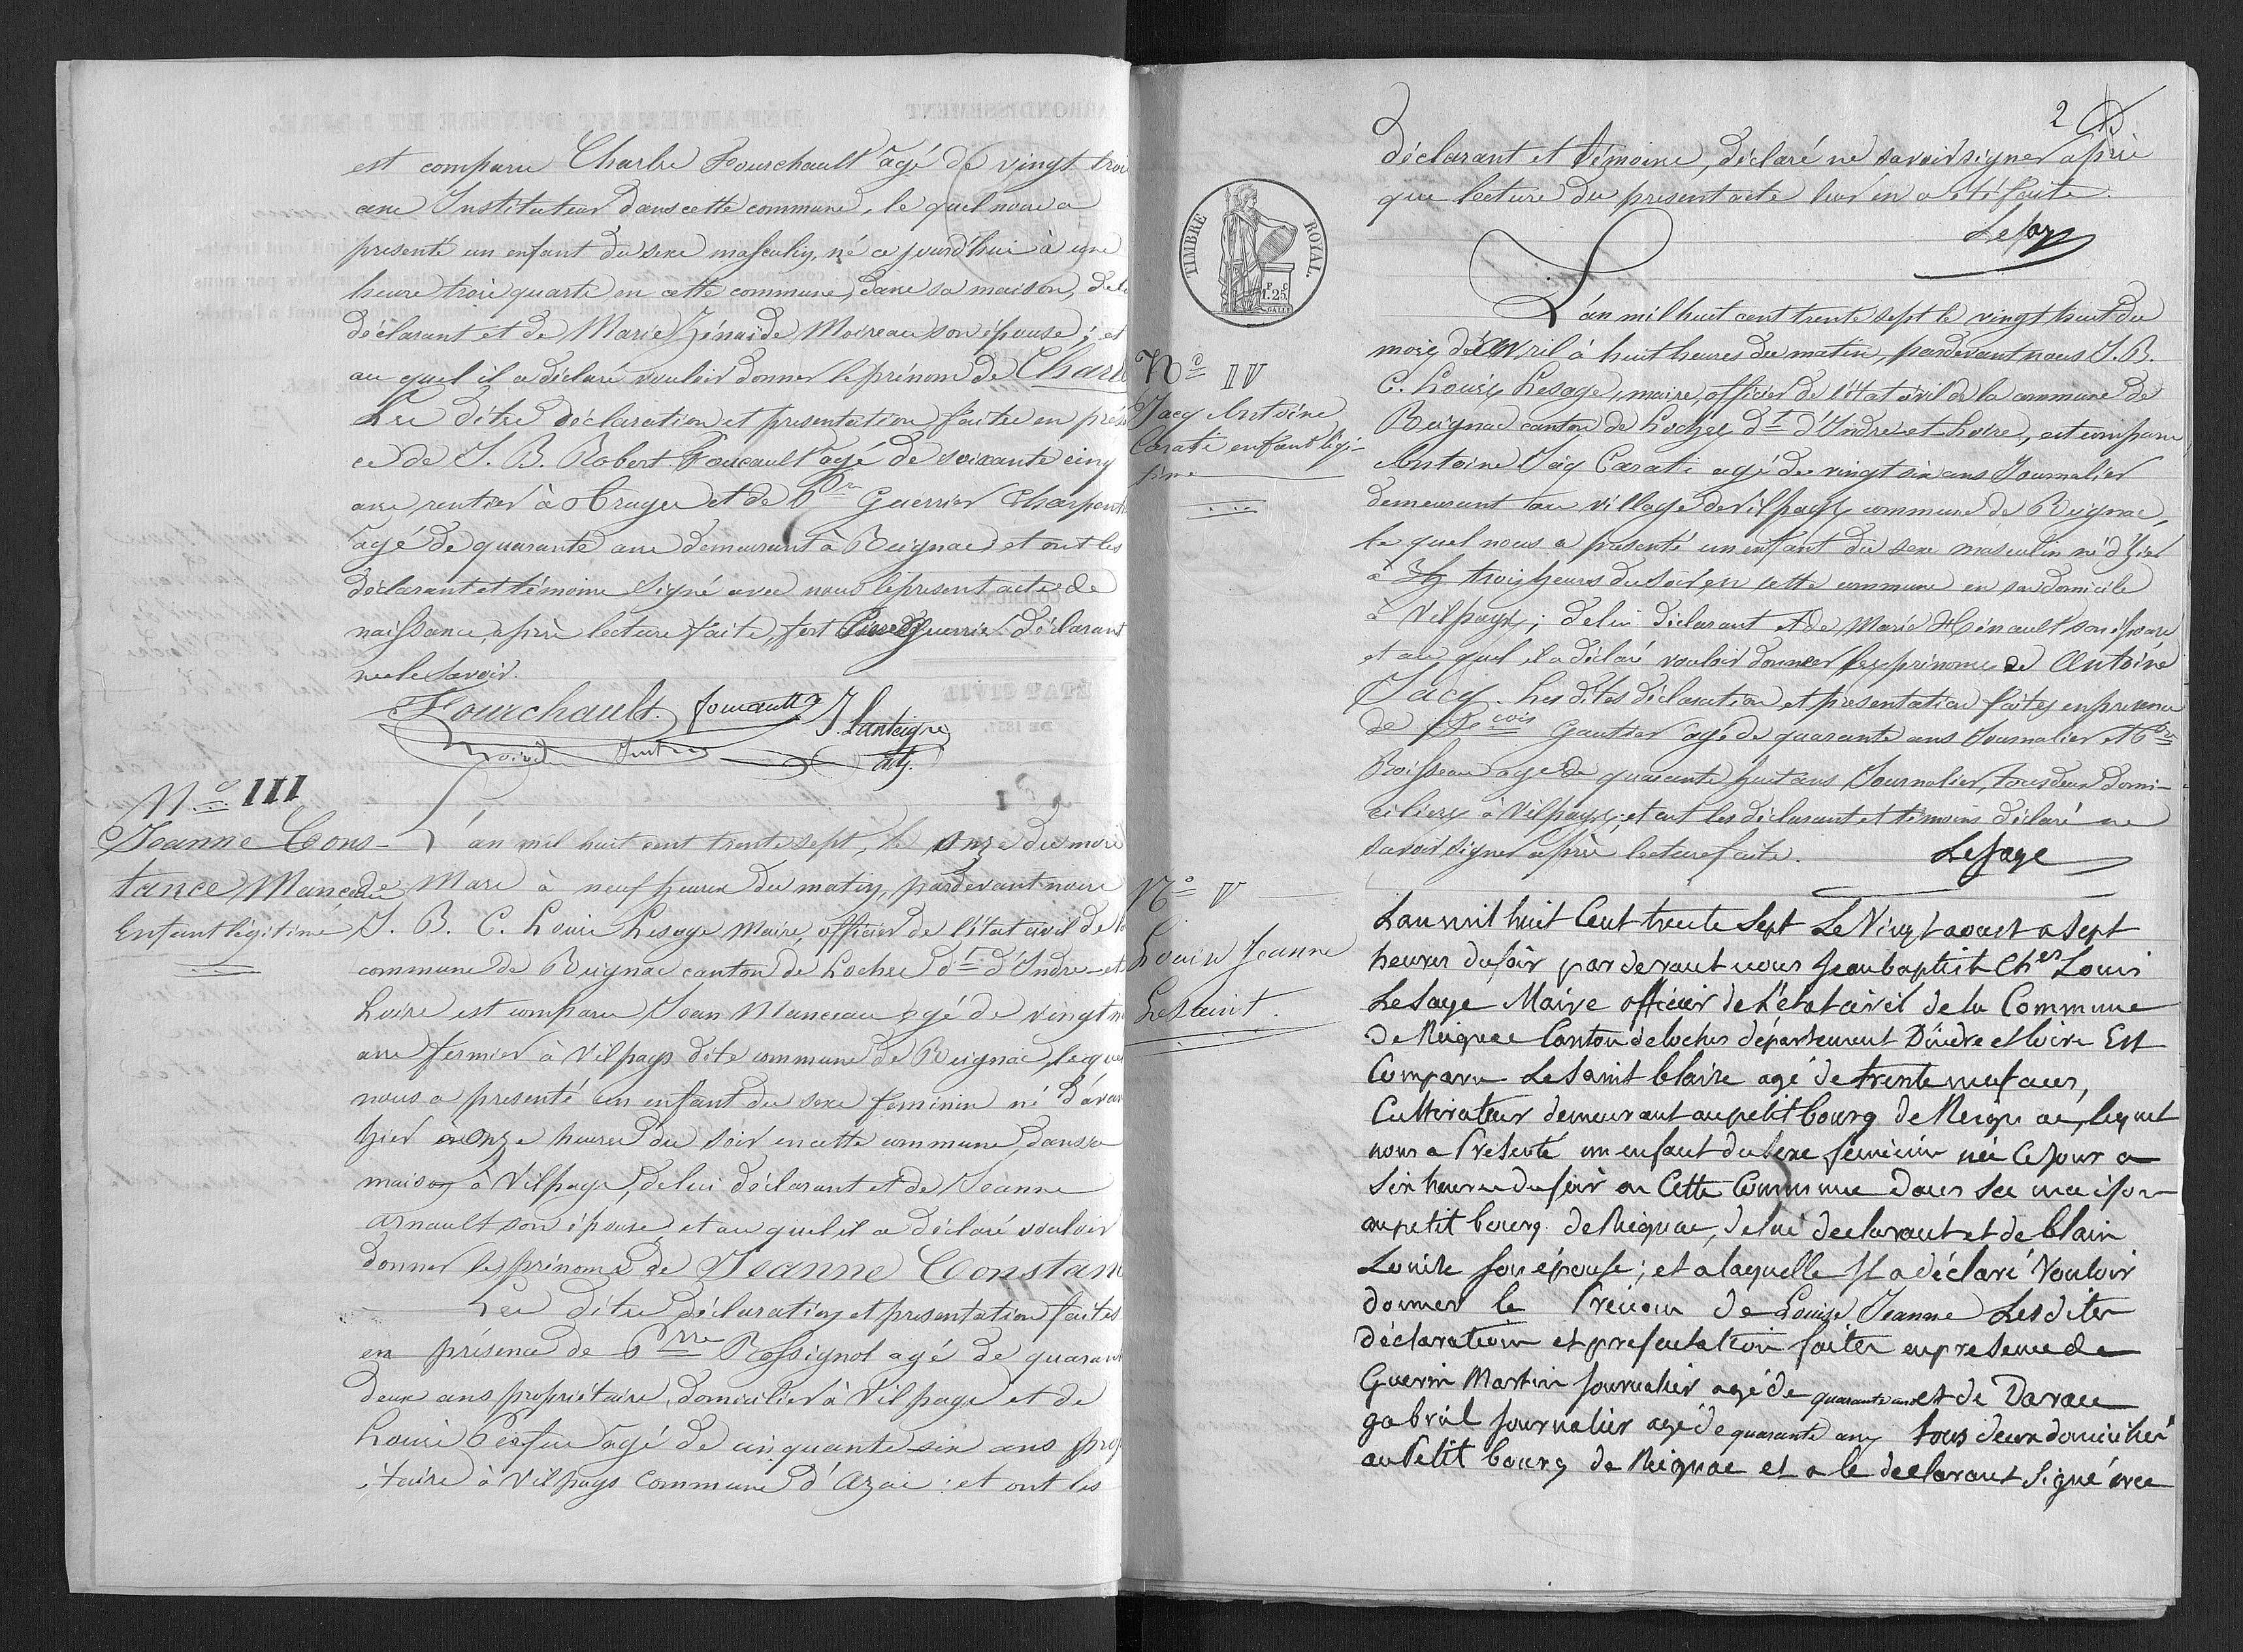 est comparu Charles Fourchault agé de vingt trois
ans Instituteur dans cette commune, le quel nous a
presenté un enfant du sexe masculin, né ce jourd'hui à une
heure trois quarts en cette commune, dans sa maison, de lui
déclarant et de Marie Zénaïde Moireau son épouse; et
au quel il a déclaré vouloir donner le prénom de Charl
Les dites déclaration et presentation faites en prés
ce de J. B. Robert Foucault agé de soixante cinq
ans rentier à Truyes et de Guerrier Charpent
agé de quarante ans demeurant à Reignac et ont les
déclarant et témoins signé avec nous le présent acte de
naissance, après lecture faite, fort Guerrier déclarant
ne le savoir.
Fourchault. foucault J. Lanteigne
N.º III
Jeanne Cons-
tance Manceau
Enfant légitime
L'an mil huit cent trente sept, le onze du mois
de Mars à neuf heures du matin, pardevant nous
J. B. C. Louis Lesage Maire, officier de l'état civil de la
commune de Reignac canton de Loches d.t d'Indre et
Loire est comparu Jean Manceau agé de vingt
ans fermier à Vilpays dite commune de Reignac, lequel
nous a presenté un enfant du sexe feminin né d'avan
hier à onze heures du soir en cette commune, dans sa
maison à Vilpays, de lui déclarant et de Jeanne
Arnault son épouse, et au quel il a déclaré vouloir
donner le prénoms de Jeanne Constan
Les dites déclaration et presentation faites
en présence de Pierre Rossignol agé de quarante
deux ans propriétaire, domicilier à Vilpays et de
Louis agé de cinquante six ans prop
iétaire à Vilpays commune d'Azai: et ont les
2
déclarant et témoins, déclaré ne savoir signer après
que lecture du present acte leur en a été faite.
Lesage
TIMBRE ROYAL.
F. C
1.25.
N.º IV
Jacq Antoine
Carati enfant légi-
time
L'an mil huit cent trente sept le vingt huit du
mois d'Avril à huit heures du matin, pardevant nous J. B.
C. Louis Lesage, maire, officier de l'état civil de la commune de
Reignac canton de Loches d.t d'Indre et Loire, est comparu
Antoine Jacq Carati agé de vingt six ans Journalier
demeurant au village de Vilpays commune de Reignac,
le quel nous a presenté un enfant du sexe masculin né d'hier
à trois heures du soir en cette commune en son domicile
à Vilpays; de lui déclarant et de Marie Hénault son épouse
et au quel il a déclaré vouloir donner les prénoms de Antoine
Jacq. Les dites déclaration et presentation faites en presence
de F.cois Gautier agé de quarante ans Journalier et P.re
Boisseau agé de quarante huit ans, Journalier, tous deux domi-
ciliers à Vilpays; et ont les déclarant et témoins déclaré ne
savoir signer après lecture faite. Lesage
N.º V
Louise Jeanne
Lesaint.
Lan mil huit Cent trente Sept Le Vingt aoust a Sept
heures du soir par devant nous Jean baptiste Ch.es Louis
Lesage Maire officier de L'état civil de la Commune
De Reignac Canton de loches département D'indre et loire Est
Comparu Lesaint blaise agé de trente neuf ans,
Cultivateur demeurant au petit bourg de Reignac, lequel
nous a Presenté un enfant du Sexe feminin née Ce Jour a
Six heures du soir en Cette Commune dans sa maison
au petit bourg de Reignac, de lui declarant et de blain
Louise son épouse; et a laquelle Il a déclaré Vouloir
donner le Prenom de Louise Jeanne Les dites
déclaration et presentation faites en presence de
Guerin Martin Journalier agé de quarante ans et de Davau
gabriel Journalier agé de quarante ans tous deux domicilié
au Petit bourg de Reignac et a le declarant Signé avec